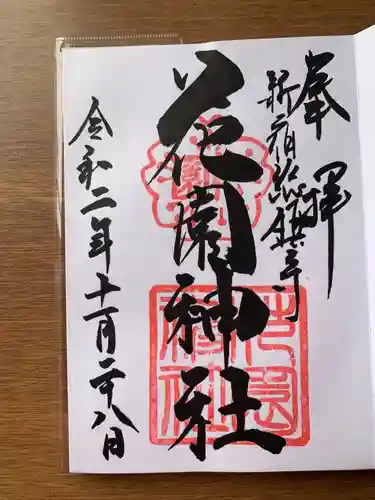 奉拝
新宿総鎮守
花園神社
令和二年十一月二十八日
花園神社